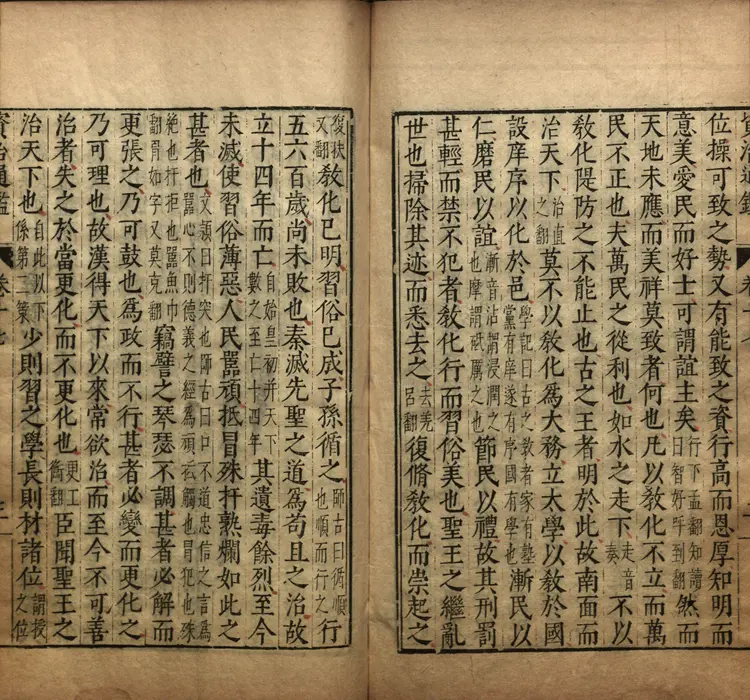 位操可致之勢又有能致之資行高而恩厚知明而
意美愛民而好士可謂誼主矣行下孟翻知讀曰智好呼到翻然而
天地未應而美祥莫致者何也凡以教化不立而萬
民不正也夫萬民之從利也如水之走下走音奏不以
教化隄防之不能止也古之王者明於此故南面而
治天下治直之翻莫不以教化為大務立太學以教於國
設庠序以化於邑學記曰古之教者家有塾黨有庠遂有序國有學也漸民以
仁磨民以誼漸音沾謂浸潤之也摩謂砥厲之也節民以禮故其刑罰
甚輕而禁不犯者教化行而習俗美也聖王之繼亂
世也掃除其迹而悉去之去羌呂翻復脩教化而崇起之
復扶又翻教化已明習俗已成子孫循之師古曰循順也順而行之行
五六百歲尚未敗也秦滅先聖之道為苟且之治故
立十四年而亡自始皇初并天下數之至亡十四年其遺毒餘烈至今
未滅使習俗薄惡人民嚚頑抵冒殊扞熟爛如此之
甚者也文穎曰扞突也師古曰口不道忠信之言為嚚心不則德義之經為頑抵觸也冒犯也殊
絶也扞拒也嚚魚巾翻冐如字又莫克翻竊譬之琴瑟不調甚者必解而
更張之乃可鼓也為政而不行甚者必變而更化之
乃可理也故漢得天下以來常欲治而至今不可善
治者失之於當更化而不更化也更工衡翻臣聞聖王之
治天下也自此以下係第二策少則習之學長則材諸位謂授之位
資治通鑑 卷十七